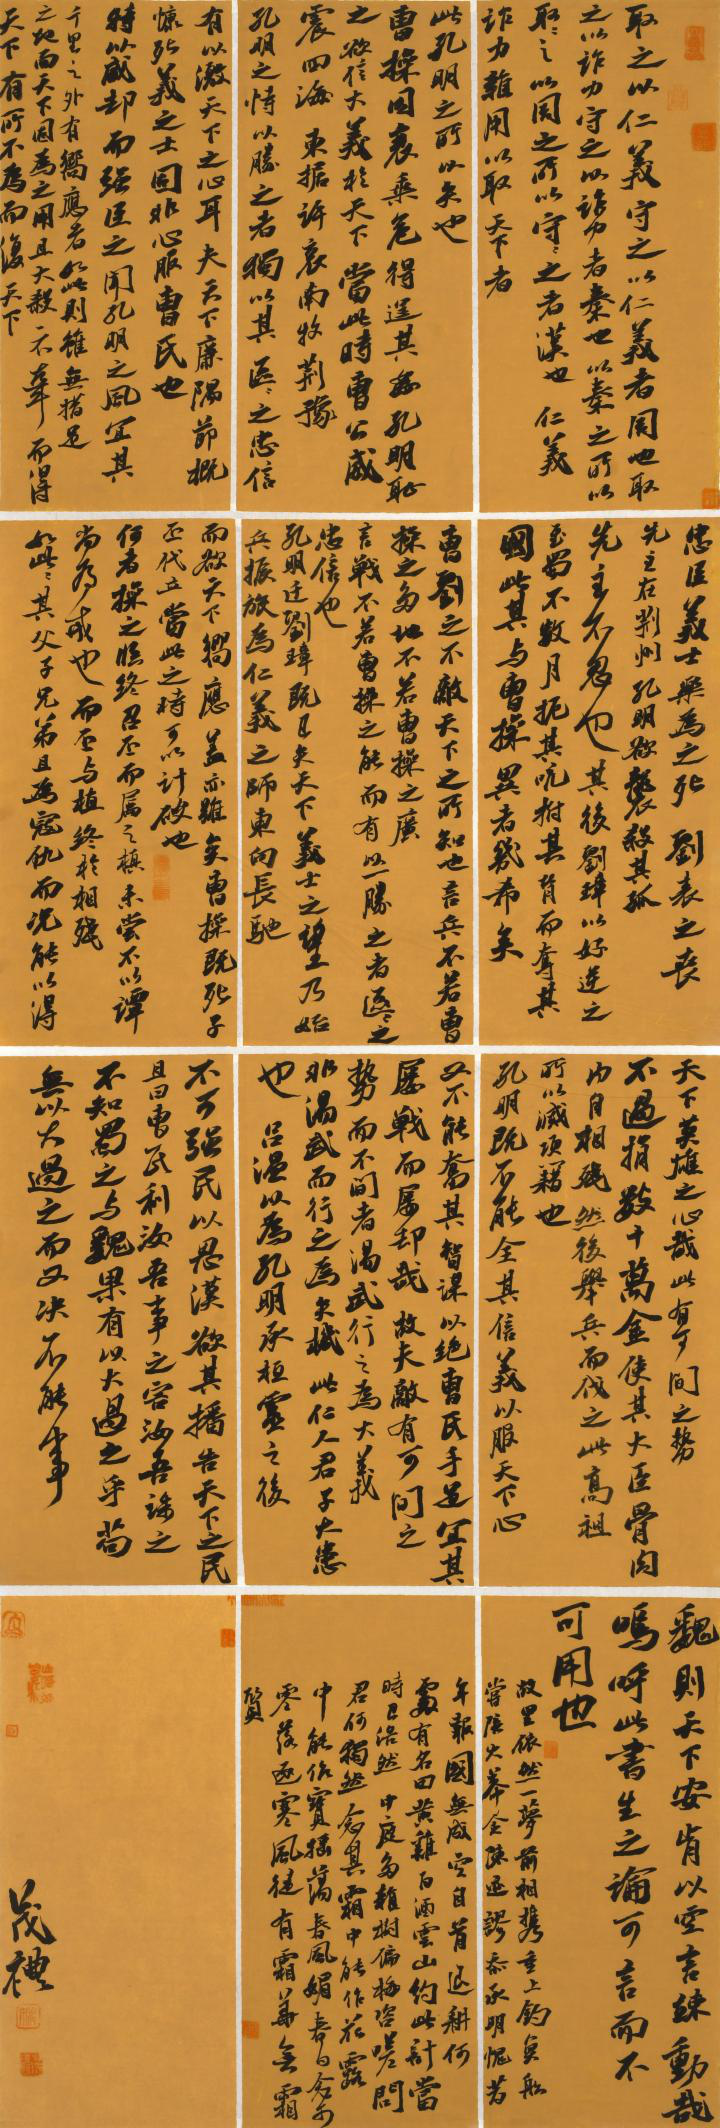 取之以仁義守之以仁義者周也取
之以詐力守之以詐力者秦也以秦之所以
取〻之以周之所以守〻之者漢也仁義
詐力雜用以取天下者
此孔明之所以失也
曹操因衰乘危得逞其姦孔明恥
之欲信大義於天下當此時曹公威
震四海東據許兗南牧荊豫
孔明之恃以勝之者獨以其區〻之忠信
有以激天下之心耳夫天下廉隅節概
慷死義之士固非心服曹氏也
特以威却而强臣之聞孔明之風宜其
千里之外有嚮應者如此則雖無措足
之地而天下固為之用且夫殺一不辜而得
天下有所不為而後天下
忠臣義士樂為之死劉表之喪
先主在荆州孔明欲襲殺其孤
先主不忍也其後劉璋以好逆之
至蜀不數月扼其吭拊其背而奪其
國此其與曹操異者幾希矣
曹劉之不敵天下之所知也言兵不若曹
操之多地不若曹操之廣
言戰不若曹操之能而有以一勝之者區〻之
忠信也
孔明迁劉璋既已失天下義士之望乃始
兵振旅為仁義之師東向長馳
而欲天下嚮應蓋亦難矣曹操既死子
丕代立當此之時可以計破也
何者操之臨終召丕而属之植未嘗不以譚
尚為戒也而丕与植終於相殘
如此〻其父子兄弟且為寇仇而况能以得
天下英雄之心哉此有可間之勢
不過捐數十萬金使其大臣骨肉
内自相殘然後舉兵而伐之此高祖
所以滅項籍也
孔明既不能全其信義以服天下心
又不能奮其智謀以絶曹氏手足宜其
屡戰而屡却哉故夫敵有可間之
勢而不間者湯武行之為大義
非湯武而行之為失機此仁人君子大患
也呂温以為孔明承桓靈之後
不可强民以思漢欲其播告天下之民
且曰曹氏利汝吾事之害汝吾誅之
不知蜀之与魏果有以大過之乎苟
無以大過之而又决不能事
魏則天下安肯以空言竦動哉
嗚呼此書生之論可言而不
可用也
故里依然一夢前相携重上釣魚船
嘗陪大幕全陳迹謬忝承明愧昔
年報國無成空自首退耕何
處有名田黄雞白酒雲山約此計當
時已浩然中庭多雜樹偏梅咨嗟問
君何獨然念其霜中能作花露
中能作實摇蕩春風媚春日念爾
零落逐寒風徒有霜華無霜
質
茂禮